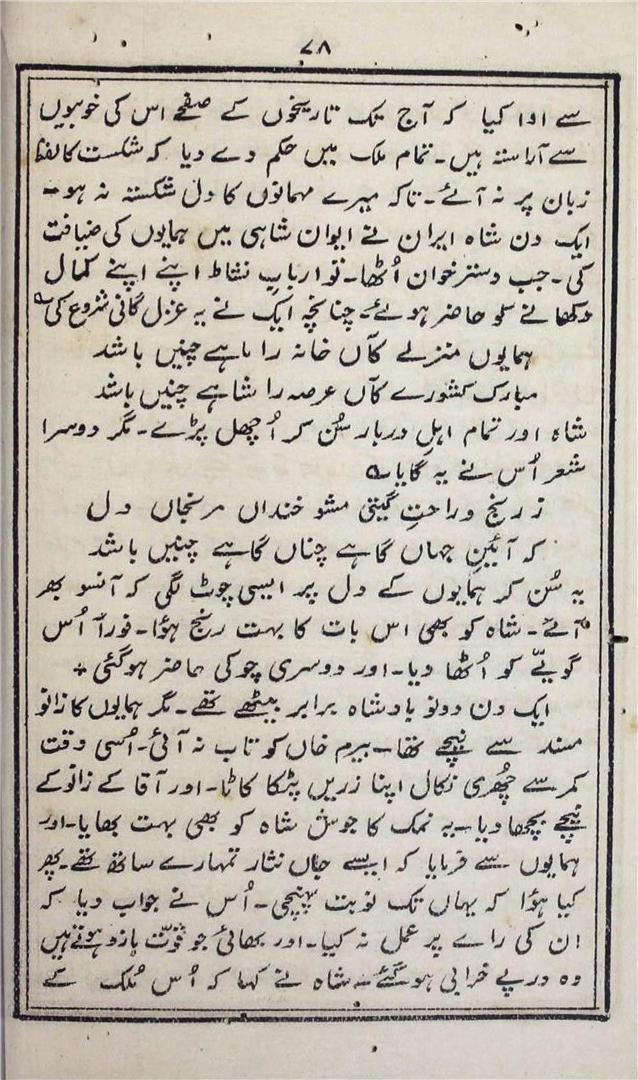 ۷۸
سے ادا کیا کہ آج تک تاریخوں کے صفحے اس کی خوبیوں
سے آراستہ ہیں۔ تمام ملک میں حکم دے دیا کہ شکست کا لفظ
زبان پر نہ آئے۔ تاکہ میرے مہمانوں کا دل شکستہ نہ ہو۔
ایک دن شاہ ایران نے ایوان شاہی میں ہمایوں کی ضیافت
کی۔ جب دسترخوان اُٹھا۔ تو اربابِ نشاط اپنے اپنے کمال
دکھانے کو حاضر ہوئے۔ چنانچہ ایک نے یہ غزل گانی شروع کی ؎
ہمایوں منزلے کآں خانہ را ماہے چنیں باشد
مبارک کشورے کآں عرصہ را شاہے چنیں باشد
شاہ اور تمام اہلِ دربار سُن کر اُچھل پڑے۔ مگر دوسرا
شعر اُس نے یہ گایا ؎
ز رنج و راحتِ گیتی مشو خنداں مرنجاں دل
کہ آئینِ جہاں گاہے چناں گاہے چنیں باشد
یہ سُن کر ہمایوں کے دل پر ایسی چوٹ لگی کہ آنسو بھر
آئے۔ شاہ کو بھی اس بات کا بہت رنج ہؤا۔ فوراً اُس
گویّے کو اُٹھا دیا۔ اور دوسری چوکی حاضر ہو گئی ٭
ایک دن دونو بادشاہ برابر بیٹھے تھے۔ مگر ہمایوں کا زانو
مسند سے نیچے تھا۔ بیرم خاں کو تاب نہ آئی۔ اُسی وقت
کمر سے چھُری نکال اپنا زریں پٹکا کاٹا۔ اور آقا کے زانو کے
نیچے بچھا دیا۔ یہ نمک کا جوش شاہ کو بھی بہت بھایا۔ اور
ہمایوں سے فرمایا کہ ایسے جاں نثار تمہارے ساتھ تھے۔ پھر
کیا ہؤا کہ یہاں تک نوبت پہنچی۔ اُس نے جواب دیا کہ
ان کی راے پر عمل نہ کیا۔ اور بھائی جو قوّت بازو ہوتے ہیں
وہ درپے خرابی ہو گئے۔ شاہ نے کہا کہ اُس مُلک کے